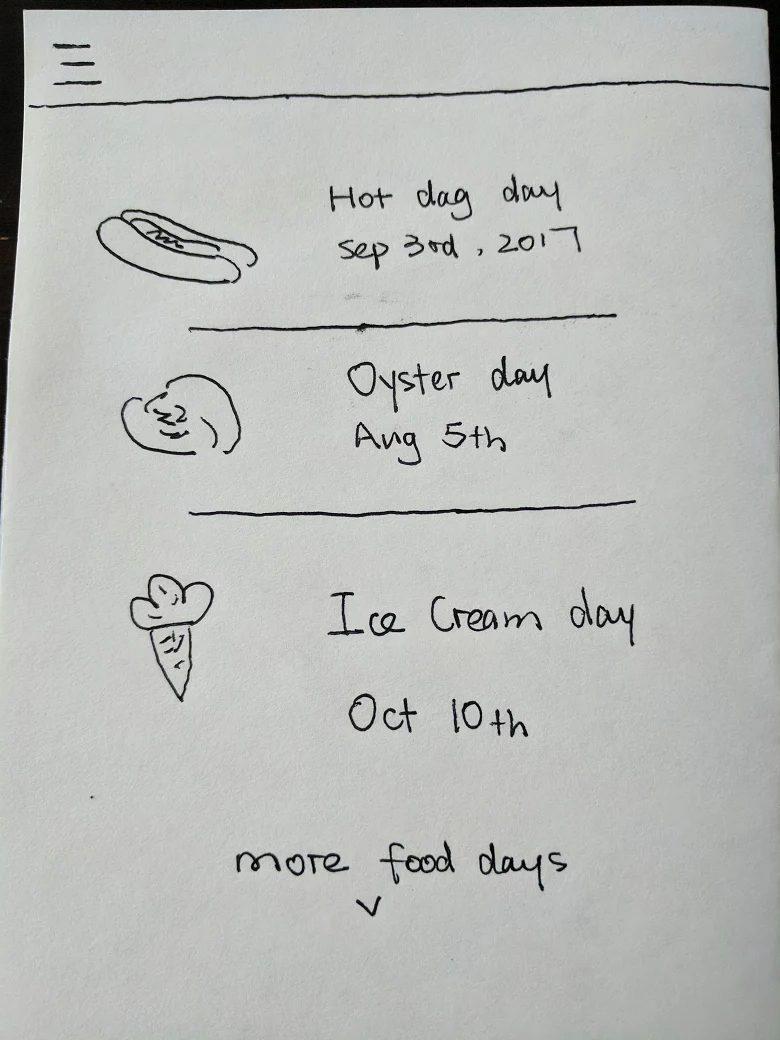 Hot dag day
sep 3rd, 2017
Oyster day
Aug 5th
Ice Cream day
Oct 10th
more food days